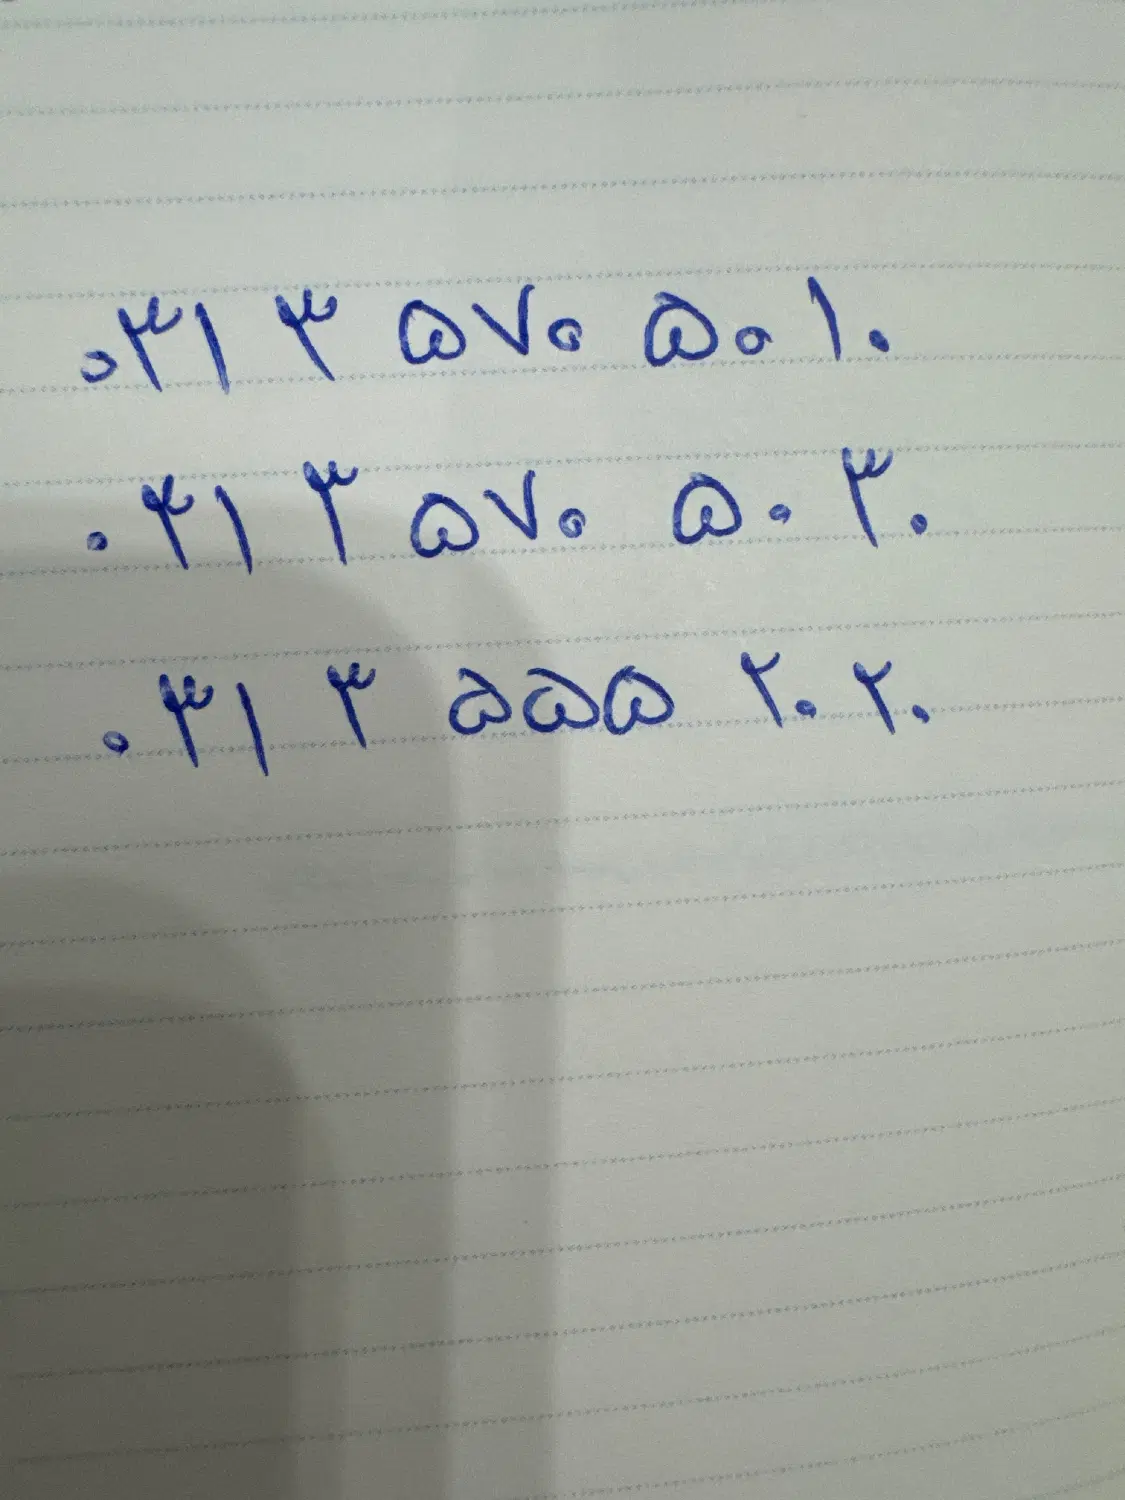 ۰۳۱ ۳ ۵۷۰ ۵۰۱۰
۰۳۱ ۳ ۵۷۰ ۵۰۳۰
۰۳۱ ۳ ۵۵۵ ۲۰۲۰